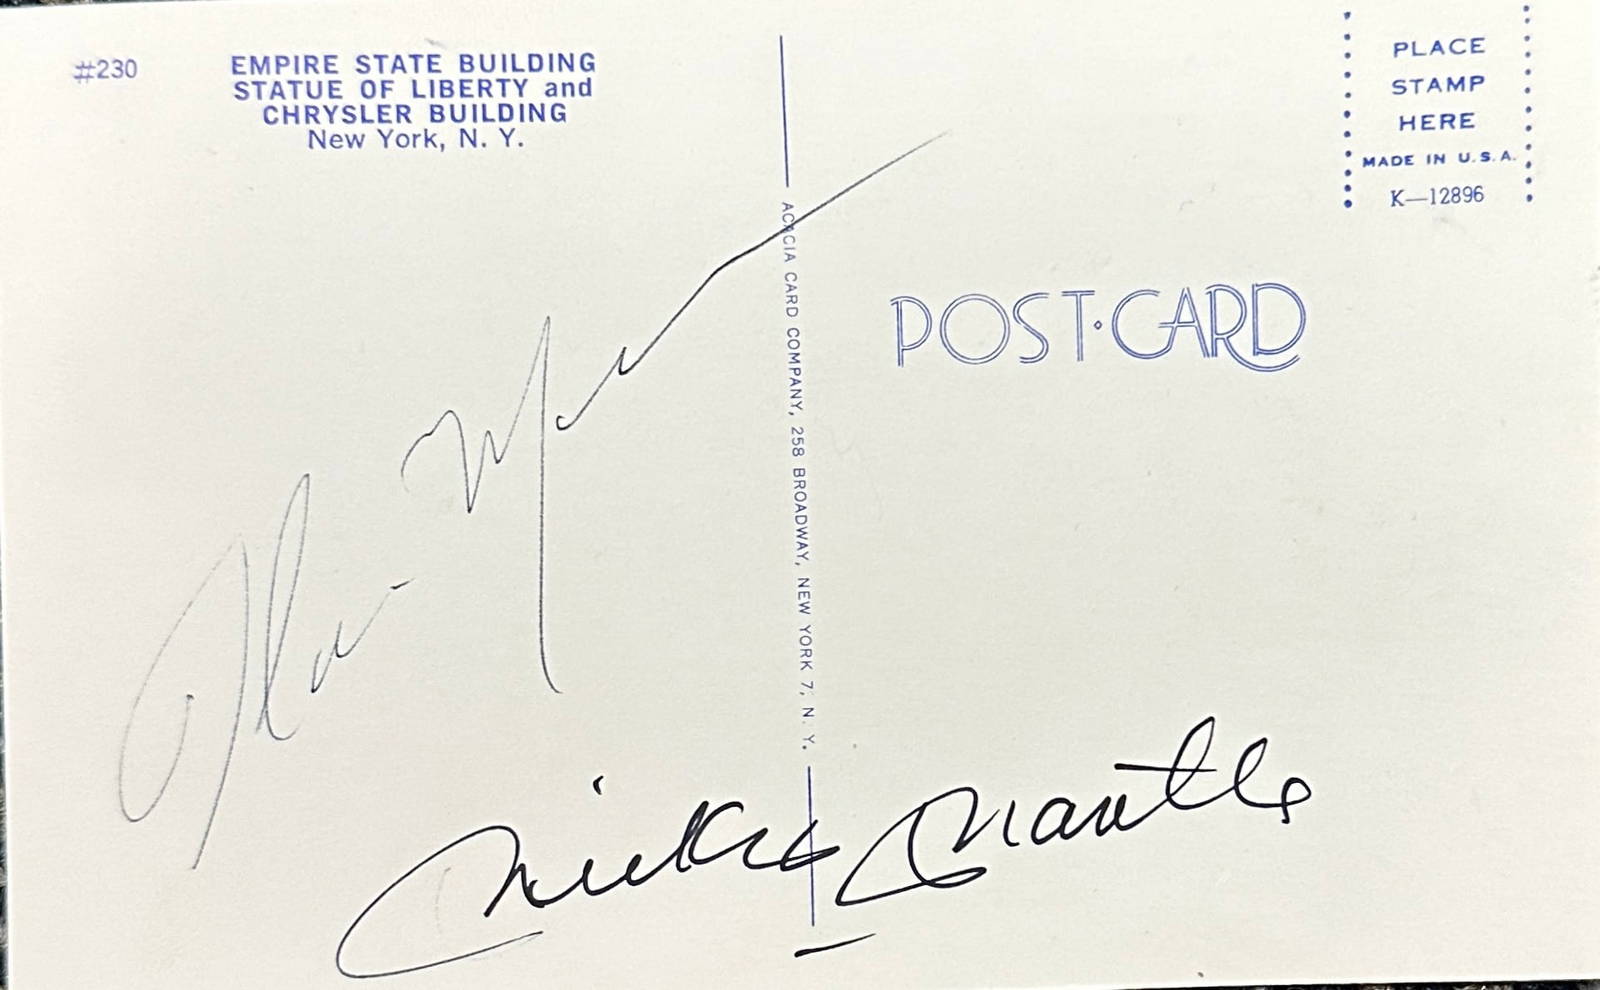 #230
EMPIRE STATE BUILDING
STATUE OF LIBERTY and
CHRYSLER BUILDING
New York, N. Y.
PLACE
STAMP
HERE
MADE IN U.S.A.
K—12896
ACACIA CARD COMPANY, 258 BROADWAY, NEW YORK 7, N. Y.
POST·CARD
Mickey Mantle